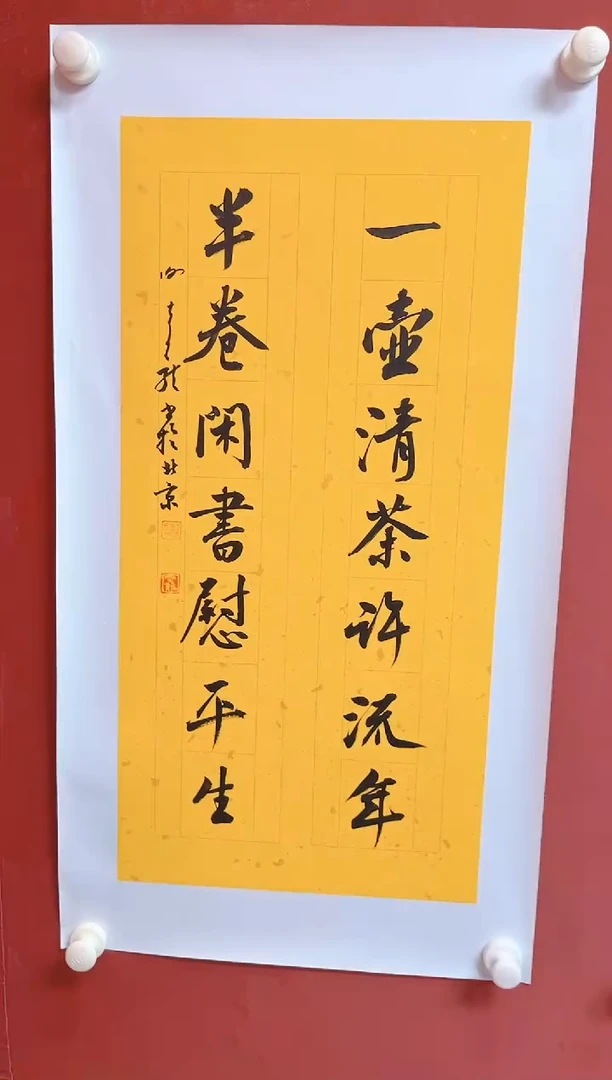 一壶清茶许流年
半卷闲書慰平生
书於北京